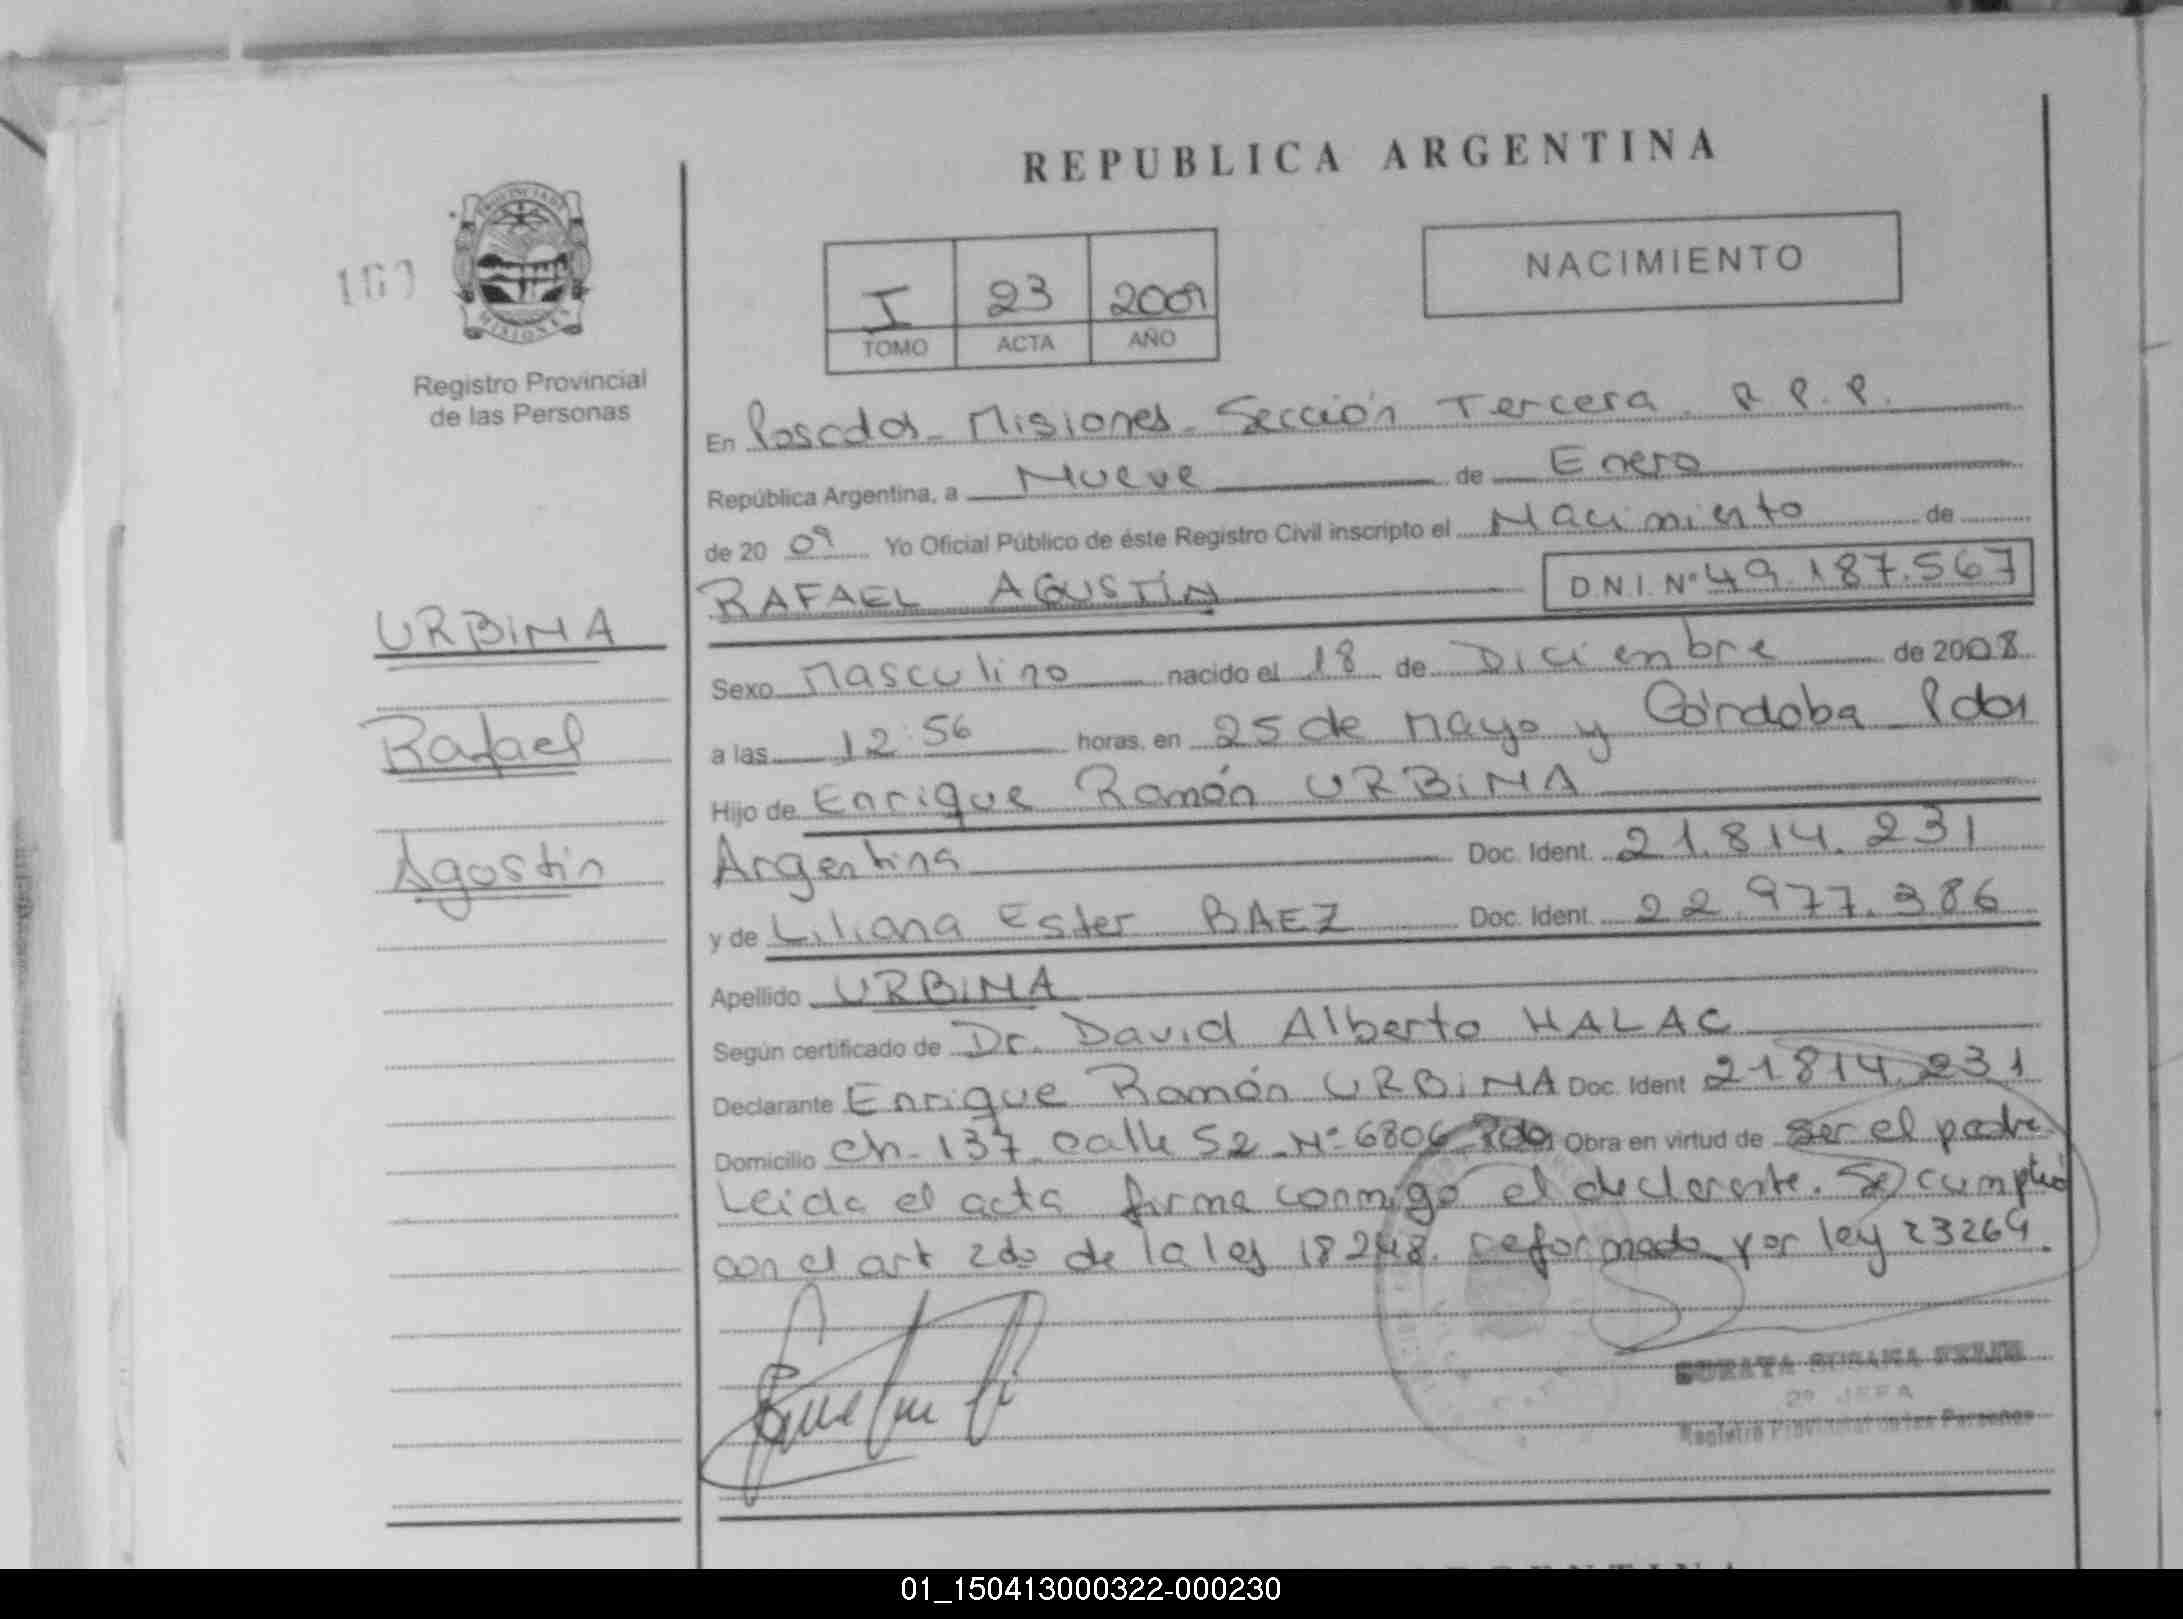 REPUBLICA ARGENTINA
PROVINCIA DE MISIONES
Registro Provincial
de las Personas
I 23 2009
TOMO ACTA AÑO
NACIMIENTO
En Posadas - Misiones - Sección Tercera. R. P. P.
República Argentina, a Nueve de Enero
de 20 09 Yo Oficial Público de éste Registro Civil inscripto el Nacimiento de
RAFAEL AGUSTÍN D.N.I. Nº 49.187.567
URBINA
Rafael
Agostin
Sexo Masculino nacido el 18 de Diciembre de 2008
a las 12:56 horas, en 25 de Mayo y Córdoba Pdas
Hijo de Enrique Ramón URBINA
Argentina Doc. Ident. 21.814.231
y de Liliana Ester BAEZ Doc. Ident. 22.977.386
Apellido URBINA
Según certificado de Dr. David Alberto HALAC
Declarante Enrique Ramón URBINA Doc. Ident 21814.231
Domicilio Ch - 137 - calle 52 - Nº 6806 Pdas Obra en virtud de ser el padre
Leida el acta firma conmigo el declarante. Se cumplió
con el art 2do de la ley 18248. reformada por ley 23264.
2º JEFA
Registro Provincial de las Personas
01_150413000322-000230